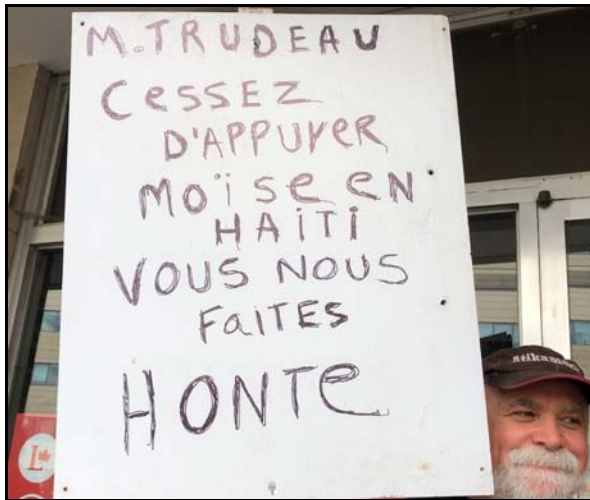 M. TRUDEAU
CESSEZ
D'APPUYER
MOÏSE EN
HAITI
VOUS NOUS
FAITES
HONTE
atikamekw
L